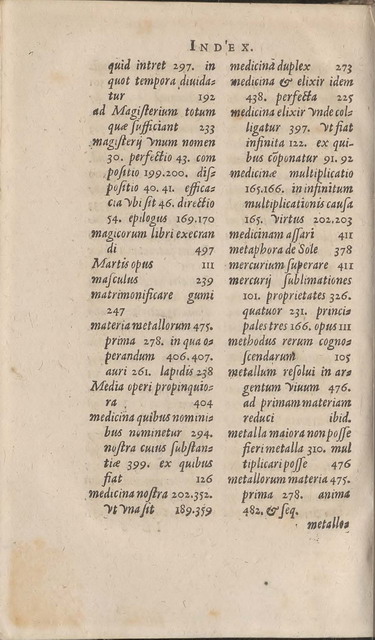 IND'EX.
quid intret 297. in
quot tempora diuida-
tur 192
ad Magiſterium totum
quæ ſufficiant 233
magiſterij vnum nomen
30. perfectio 43. com
poſitio 199.200. diſ-
poſitio 40. 41. effica-
cia vbi ſit 46. directio
54. epilogus 169.170
magicorum libri execran
di 497
Martis opus 111
maſculus 239
matrimonificare gumi
247
materia metallorum 475.
prima 278. in qua o-
perandum 406.407.
auri 261. lapidis 238
Media operi propinquio-
ra 404
medicina quibus nomini-
bus nominetur 294.
noſtra cuius ſubſtan-
tiæ 399. ex quibus
fiat 126
medicina noſtra 202.352.
vt vna ſit 189.359
medicinã duplex 273
medicina & elixir idem
438. perfecta 225
medicina elixir vnde col-
ligatur 397. vt fiat
infinita 122. ex qui-
bus cõponatur 91. 92
medicinæ multiplicatio
165.166. in infinitum
multiplicationis cauſa
165. virtus 202.203
medicinam aſſari 411
metaphora de Sole 378
mercurium ſuperare 411
mercurij ſublimationes
101. proprietates 326.
quatuor 231. princi-
pales tres 166. opus 111
methodus rerum cogno-
ſcendarum 105
metallum reſolui in ar-
gentum viuum 476.
ad primam materiam
reduci ibid.
metalla maiora non poſſe
fieri metalla 310. mul
tiplicari poſſe 476
metallorum materia 475.
prima 278. anima
482. & ſeq.
metallo-